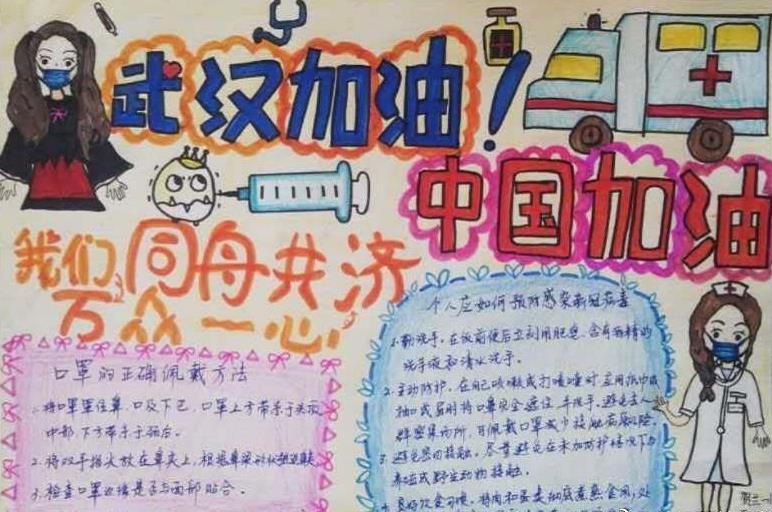 武汉加油!
中国加油
我们同舟共济
万众一心
口罩的正确佩戴方法
1.将口罩罩住鼻、口及下巴,口罩上方带系于头顶
中部,下方带系于颈后。
2.将双手指尖放在鼻夹上,根据鼻梁形状塑造鼻夹
3.检查口罩边缘是否与面部贴合。
个人应如何预防感染新冠病毒
1.勤洗手。在饭前便后立刻用肥皂、含有酒精的
洗手液和清水洗手。
2.主动防护。在自己咳嗽或打喷嚏时,应用纸巾或
袖口或肩肘将口鼻完全遮住,并洗手。避免去人
群密集场所,可佩戴口罩减少接触病原风险。
3.避免密切接触。尽量避免在未加防护情况下与
养殖或野生动物接触。
4.良好饮食习惯。将肉和蛋类彻底煮熟食用,处